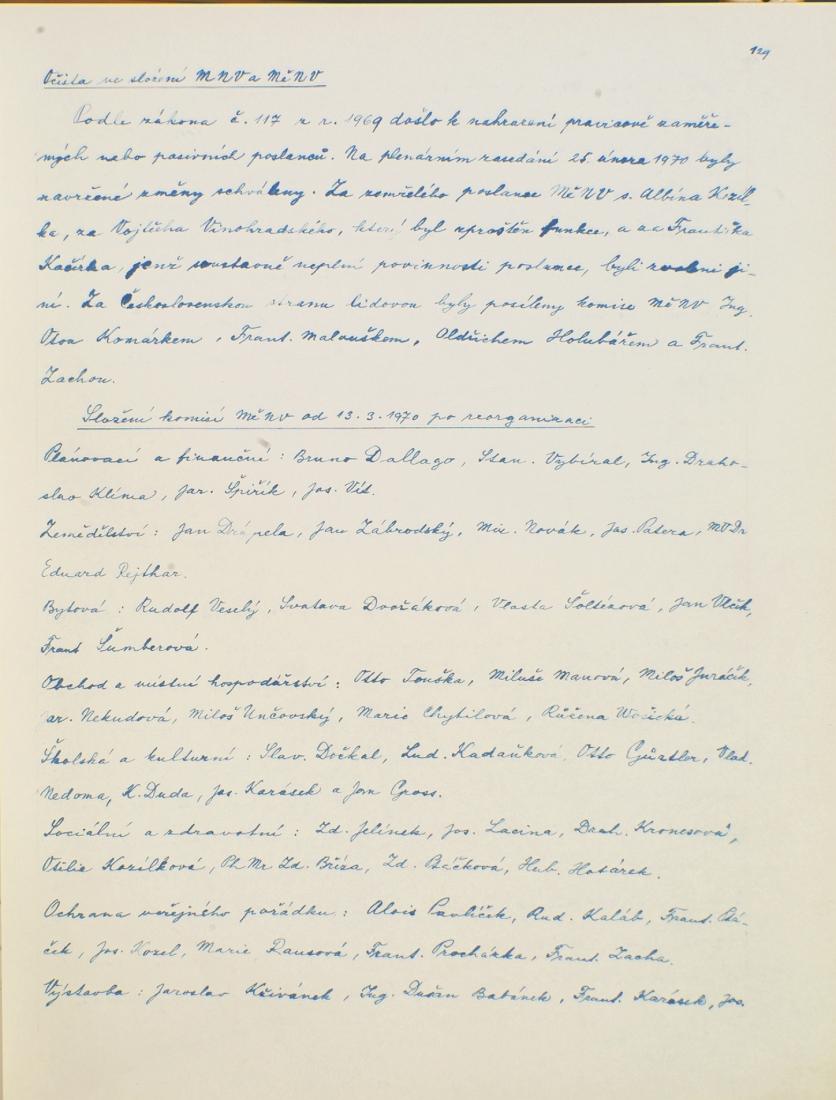 129
Očista ve složení MNV a MěNV
Podle zákona č. 117 z r. 1969 došlo k nahrazení pravicově zaměře-
ných nebo pasivních poslanců. Na plenárním zasedání 25. února 1970 byly
navržené změny schváleny. Za zemřelého poslance MěNV s. Albína Kozíl-
ka, za Vojtěcha Vinohradského, který byl zproštěn funkce, a za Františka
Kačírka, jenž soustavně neplní povinnosti poslance, byli zvoleni ji-
ní. Za Československou stranu lidovou byly posíleny komise MěNV Ing.
Otou Komárkem, Frant. Malouškem, Oldřichem Holubářem a Frant.
Zachou.
Složení komisí MěNV od 13. 3. 1970 po reorganizaci
Plánovací a finanční: Bruno Dallago, Stan. Vybíral, Ing. Draho-
slav Klíma, Jar. Špiřík, Jos. Vít.
Zemědělství: Jan Drápela, Jan Zábrodský, Mir. Novák, Jos. Patera, MVDr
Eduard Rejthar.
Bytová: Rudolf Veselý, Svatava Dvořáková, Vlasta Šoltézová, Jan Vlček,
Frant Šumberová.
Obchod a místní hospodářství: Otto Touška, Miluše Manová, Miloš Juráčik,
Jar. Nekudová, Miloš Unčovský, Marie Chybilová, Růžena
Školská a kulturní: Slav. Dočkal, Lud. Kadaňková, Otto Günztler, Vlad.
Nedoma, K. Duda, Jos. Karásek a Jan Gross.
Sociální a zdravotní: Zd. Jelínek, Jos. Lacina, Drah. Kronesová,
Otilie Kozílková, PhMr Zd. Bříza, Zd. Ptáčková, Hub. Hotárek.
Ochrana veřejného pořádku: Alois Pavlíček, Rud. Kaláb, Frant. Ptá-
ček, Jos. Kozel, Marie Rausová, Frant. Procházka, Frant. Zacha.
Výstavba: Jaroslav Křivánek, Ing. Dušan Babánek, Frant. Karásek, Jos.